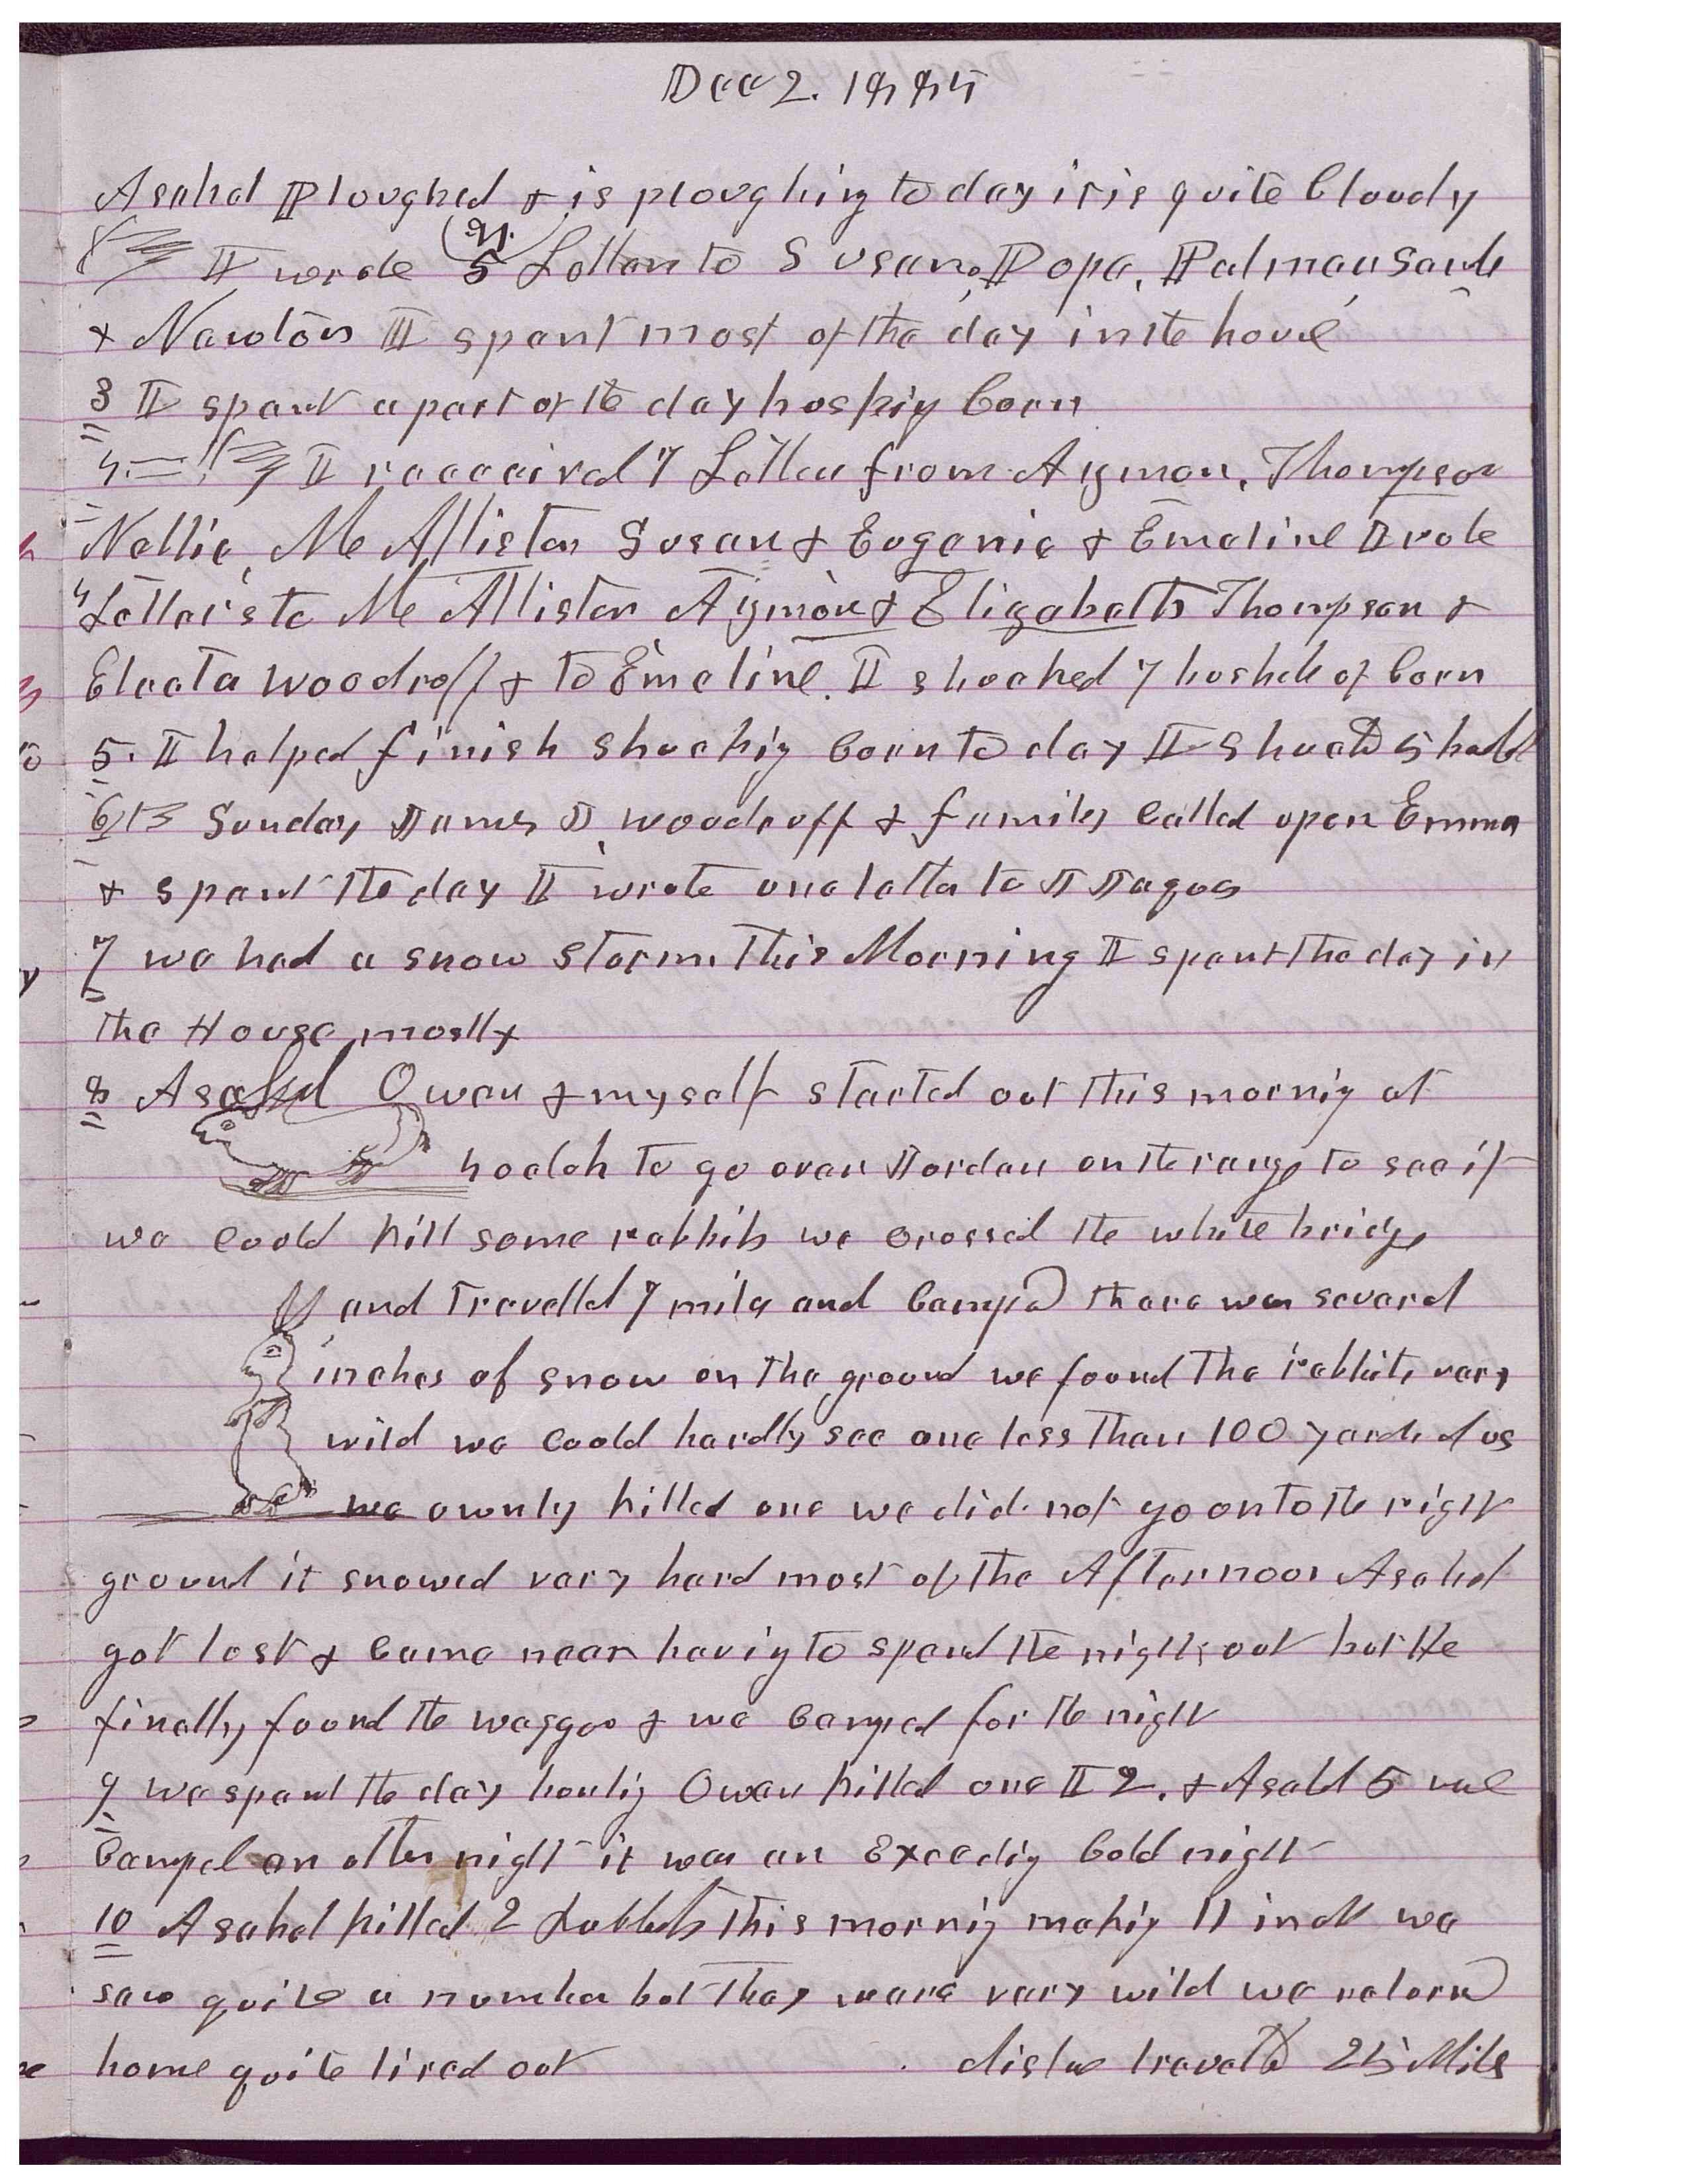 Dec 2. 1885
Asahel Ploughed & is ploughing to day it is quite Cloudy
I wrote 5 Letters to Susan, Pope, Palmer Sarah
& Newton I spent most of the day in the house
3 I spent a part of the day husking Corn
4. I receeived 7 Letters from Aymon, Thompson
Nellie, McAllister Susan & Eugenie & Emeline I wrote
4 Letters to McAllister Aymon & Elizabeth Thompson &
Electa Woodruff & to Emeline. I shucked 7 bushels of Corn
5. I helped finish shucking Corn to day I shucked 5 bushels
6th Sunday James J Woodruff & family Called upon Emma
& spent the day I wrote one letter to J Jaques
7 we had a snow Storm This Morning I spent the day in
the House mostly
8 Asahel Owen & myself started out this morning at
oclok to go over Jordan on the range to see if
we Could kill some rabbits we Crossed the white bridge
and Travelled 7 miles and Camped there was several
inches of snow on the ground we found The rabbits very
wild we Could hardly see one less than 100 yards of us
we ownly killed one we did not go on to the right
ground it snowed very hard most of the Afternoon Asahel
got lost & Came near having to spend the night out but He
finally found the waggon & we Camped for the night
9 we spent the day hunting Owen killed one I 2. & Asahel 5 we
Camped another night it was an Exceeding Cold night
10 Asahel killed 2 Rabbits this morning making 11 in all we
saw quite a number but They were very wild we returnd
home quite tired out distance traveled 25 Miles